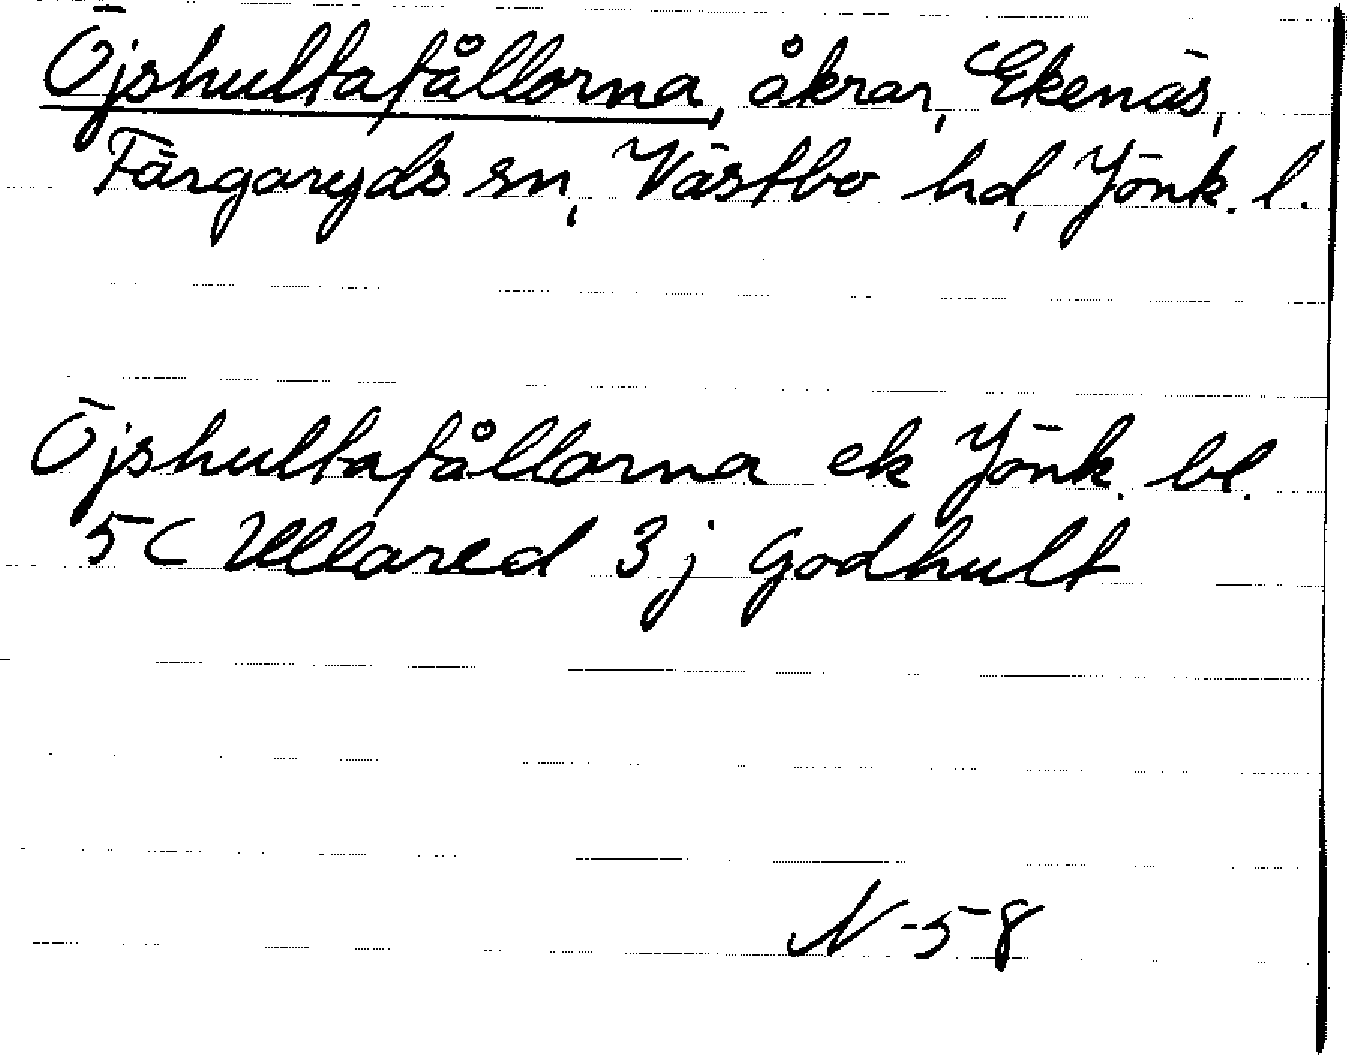 Öjshultafållorna, åkrar, Ekenäs,
Färgaryds sn, Västbo hd, Jönk. l.
Öjshultafållorna ek Jönk. bl.
5C Ullared 3j Godhult
N-58